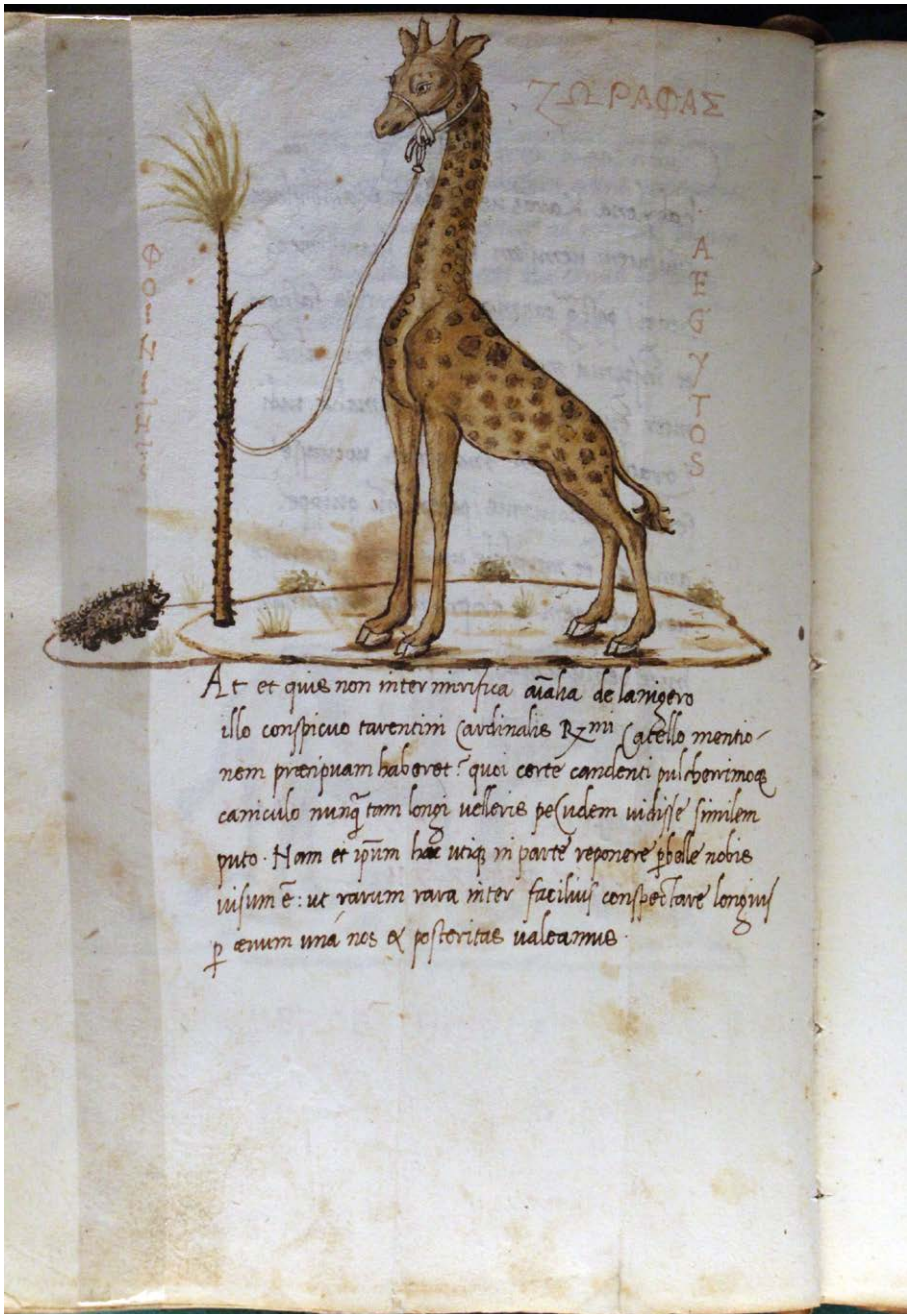 ΖΩΡΑΦΑΣ
AEGYTOS
At et quis non inter mirifica aīalia de lanigero
illo conspicuo tarentini Cardinalis Rx mi Catello mentio-
nem præcipuam haberet? quoi certe candenti pulcherrimoq
caniculo nunq̄ tam longi uelleris pecudem uidisse similem
puto. Nam et ip̄um hac utiq in parte reponere pbelle nobis
uisum ē: ut rarum rara inter facilius conspectare longius
p æuum unà nos & posteritas ualeamus.